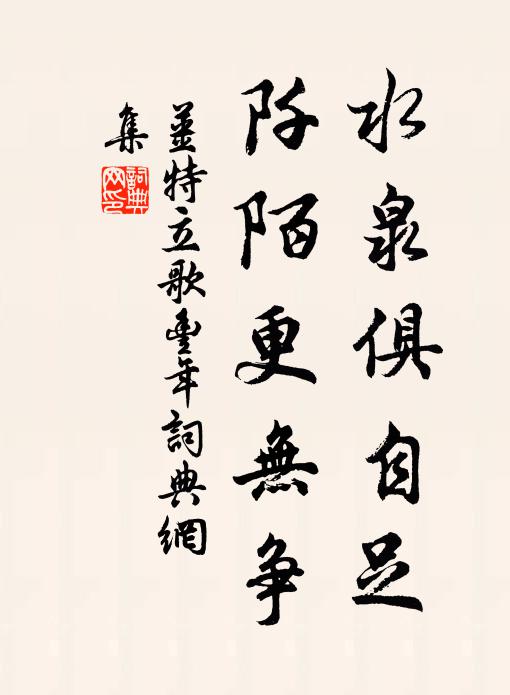 水泉俱自足
阡陌更無爭
姜特立歌豐年詞典網
集
詞典
网印